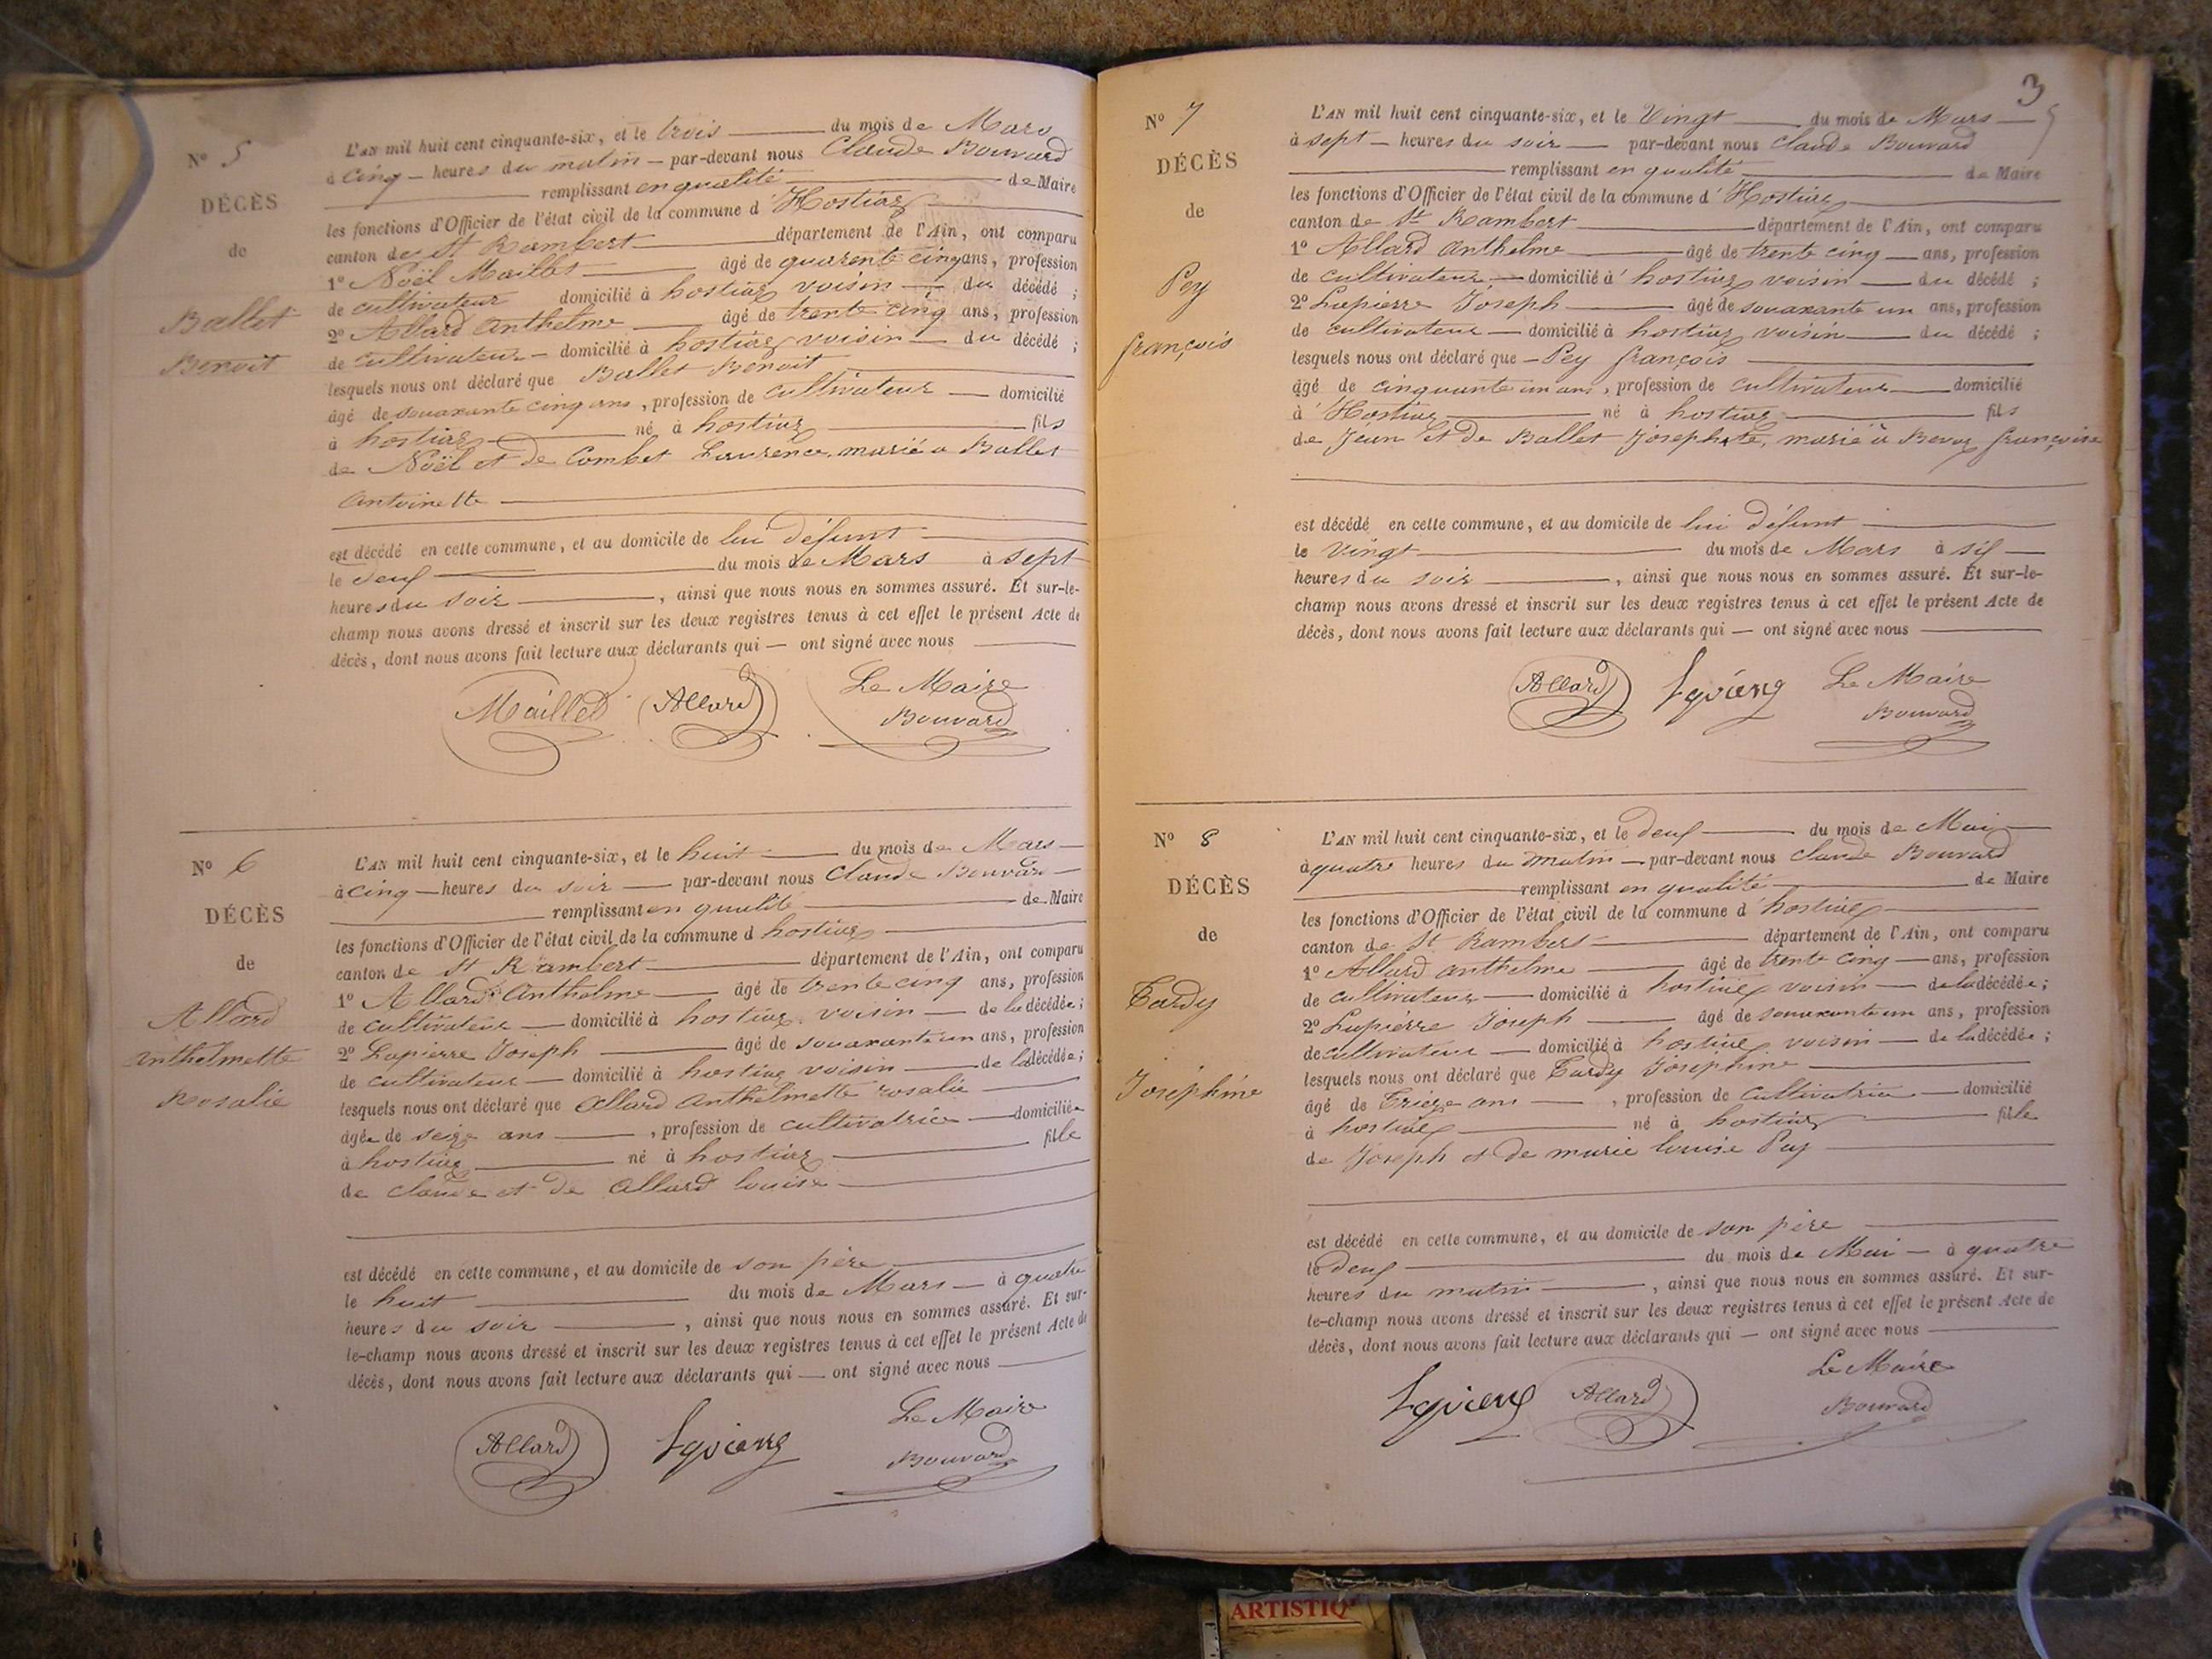 Nº 5
DÉCÈS
de
Ballet
Benoit
L'AN mil huit cent cinquante-six, et le trois du mois de Mars
à cinq heures du matin par-devant nous Claude Bouvard
remplissant en qualité de Maire
les fonctions d'Officier de l'état civil de la commune d'Hostiaz
canton de St Rambert département de l'Ain, ont comparu
1º Noël Maillet âgé de quarente cinq ans, profession
de cultivateur domicilié à hostiaz voisin du décédé ;
2º Allard Anthelme âgé de trente cinq ans, profession
de cultivateur domicilié à hostiaz voisin du décédé ;
lesquels nous ont déclaré que Ballet Benoit
âgé de souaxante cinq ans, profession de cultivateur domicilié
à hostiaz né à hostiaz fils
de Noël et de Combet Laurence, marié a Ballet
Antoinette
est décédé en cette commune, et au domicile de lui défunt
le deuf du mois de Mars à sept
heures du soir, ainsi que nous nous en sommes assuré. Et sur-le-
champ nous avons dressé et inscrit sur les deux registres tenus à cet effet le présent Acte de
décès, dont nous avons fait lecture aux déclarants qui — ont signé avec nous
Maillet Allard Le Maire
Bouvard
Nº 6
DÉCÈS
de
Allard
Anthelmette
Rosalie
L'AN mil huit cent cinquante-six, et le huit du mois de Mars
à cinq heures du soir par-devant nous Claude Bouvard
remplissant en qualité de Maire
les fonctions d'Officier de l'état civil de la commune d hostiaz
canton de St Rambert département de l'Ain, ont comparu
1º Allard Anthelme âgé de trente cinq ans, profession
de cultivateur domicilié à hostiaz voisin de la décédée ;
2º Lapierre Joseph âgé de souaxante un ans, profession
de cultivateur domicilié à hostiaz voisin de la décédée ;
lesquels nous ont déclaré que Allard Anthelmette rosalie
âgée de seize ans, profession de cultivatrice domiciliée
à hostiaz né à hostiaz fille
de claude et de Allard louise
est décédé en cette commune, et au domicile de son père
le huit du mois de Mars à quatre
heures du soir, ainsi que nous nous en sommes assuré. Et sur-
le-champ nous avons dressé et inscrit sur les deux registres tenus à cet effet le présent Acte de
décès, dont nous avons fait lecture aux déclarants qui — ont signé avec nous
Allard Le Maire
Bouvard
3
Nº 7
DÉCÈS
de
Pey
françois
L'AN mil huit cent cinquante-six, et le Vingt du mois de Mars
à sept heures du soir par-devant nous Claude Bouvard
remplissant en qualité de Maire
les fonctions d'Officier de l'état civil de la commune d'Hostiaz
canton de St Rambert département de l'Ain, ont comparu
1º Allard Anthelme âgé de trente cinq ans, profession
de cultivateur domicilié à hostiaz voisin du décédé ;
2º Lapierre Joseph âgé de souaxante un ans, profession
de cultivateur domicilié à hostiaz voisin du décédé ;
lesquels nous ont déclaré que Pey françois
âgé de cinquante un ans, profession de cultivateur domicilié
à Hostiaz né à hostiaz fils
de Jean et de Ballet Josephte, marié à françoise
est décédé en cette commune, et au domicile de lui défunt
le Vingt du mois de Mars à sif
heures du soir, ainsi que nous nous en sommes assuré. Et sur-le-
champ nous avons dressé et inscrit sur les deux registres tenus à cet effet le présent Acte de
décès, dont nous avons fait lecture aux déclarants qui — ont signé avec nous
Allard Le Maire
Bouvard
Nº 8
DÉCÈS
de
Tardy
Joséphine
L'AN mil huit cent cinquante-six, et le deuf du mois de Mai
à quatre heures du matin par-devant nous Claude Bouvard
remplissant en qualité de Maire
les fonctions d'Officier de l'état civil de la commune d'hostiaz
canton de St Rambert département de l'Ain, ont comparu
1º Allard Anthelme âgé de trente cinq ans, profession
de cultivateur domicilié à hostiaz voisin de la décédée ;
2º Lapierre Joseph âgé de souaxante un ans, profession
de cultivateur domicilié à hostiaz voisin de la décédée ;
lesquels nous ont déclaré que Tardy Joséphine
âgé de treize ans, profession de cultivatrice domicilié
à hostiaz né à hostiaz fille
de Joseph et de marie louise Pey
est décédé en cette commune, et au domicile de son père
le deuf du mois de Mai à quatre
heures du matin, ainsi que nous nous en sommes assuré. Et sur-
le-champ nous avons dressé et inscrit sur les deux registres tenus à cet effet le présent Acte de
décès, dont nous avons fait lecture aux déclarants qui — ont signé avec nous
Allard Le Maire
Bouvard
ARTISTIQ